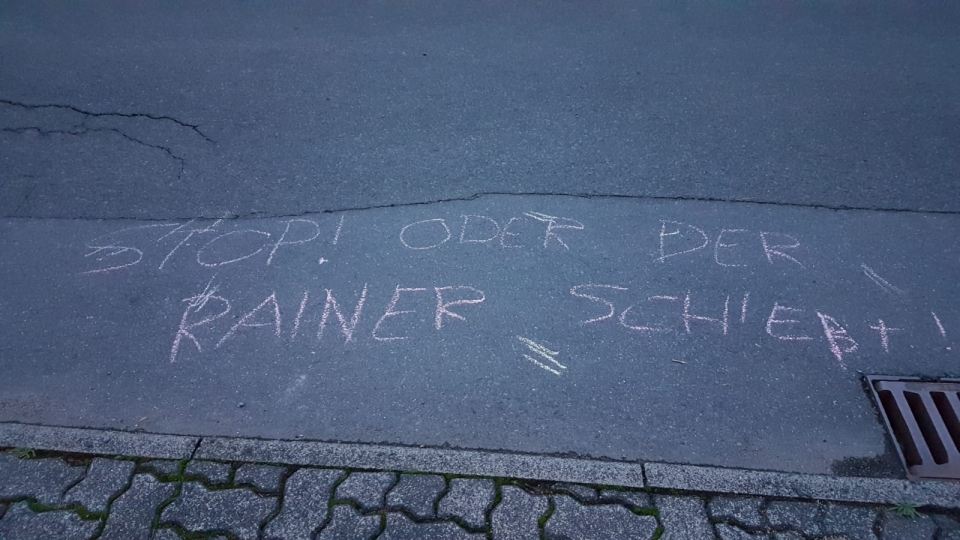 STOP! ODER DER
RAINER SCHIEBT!